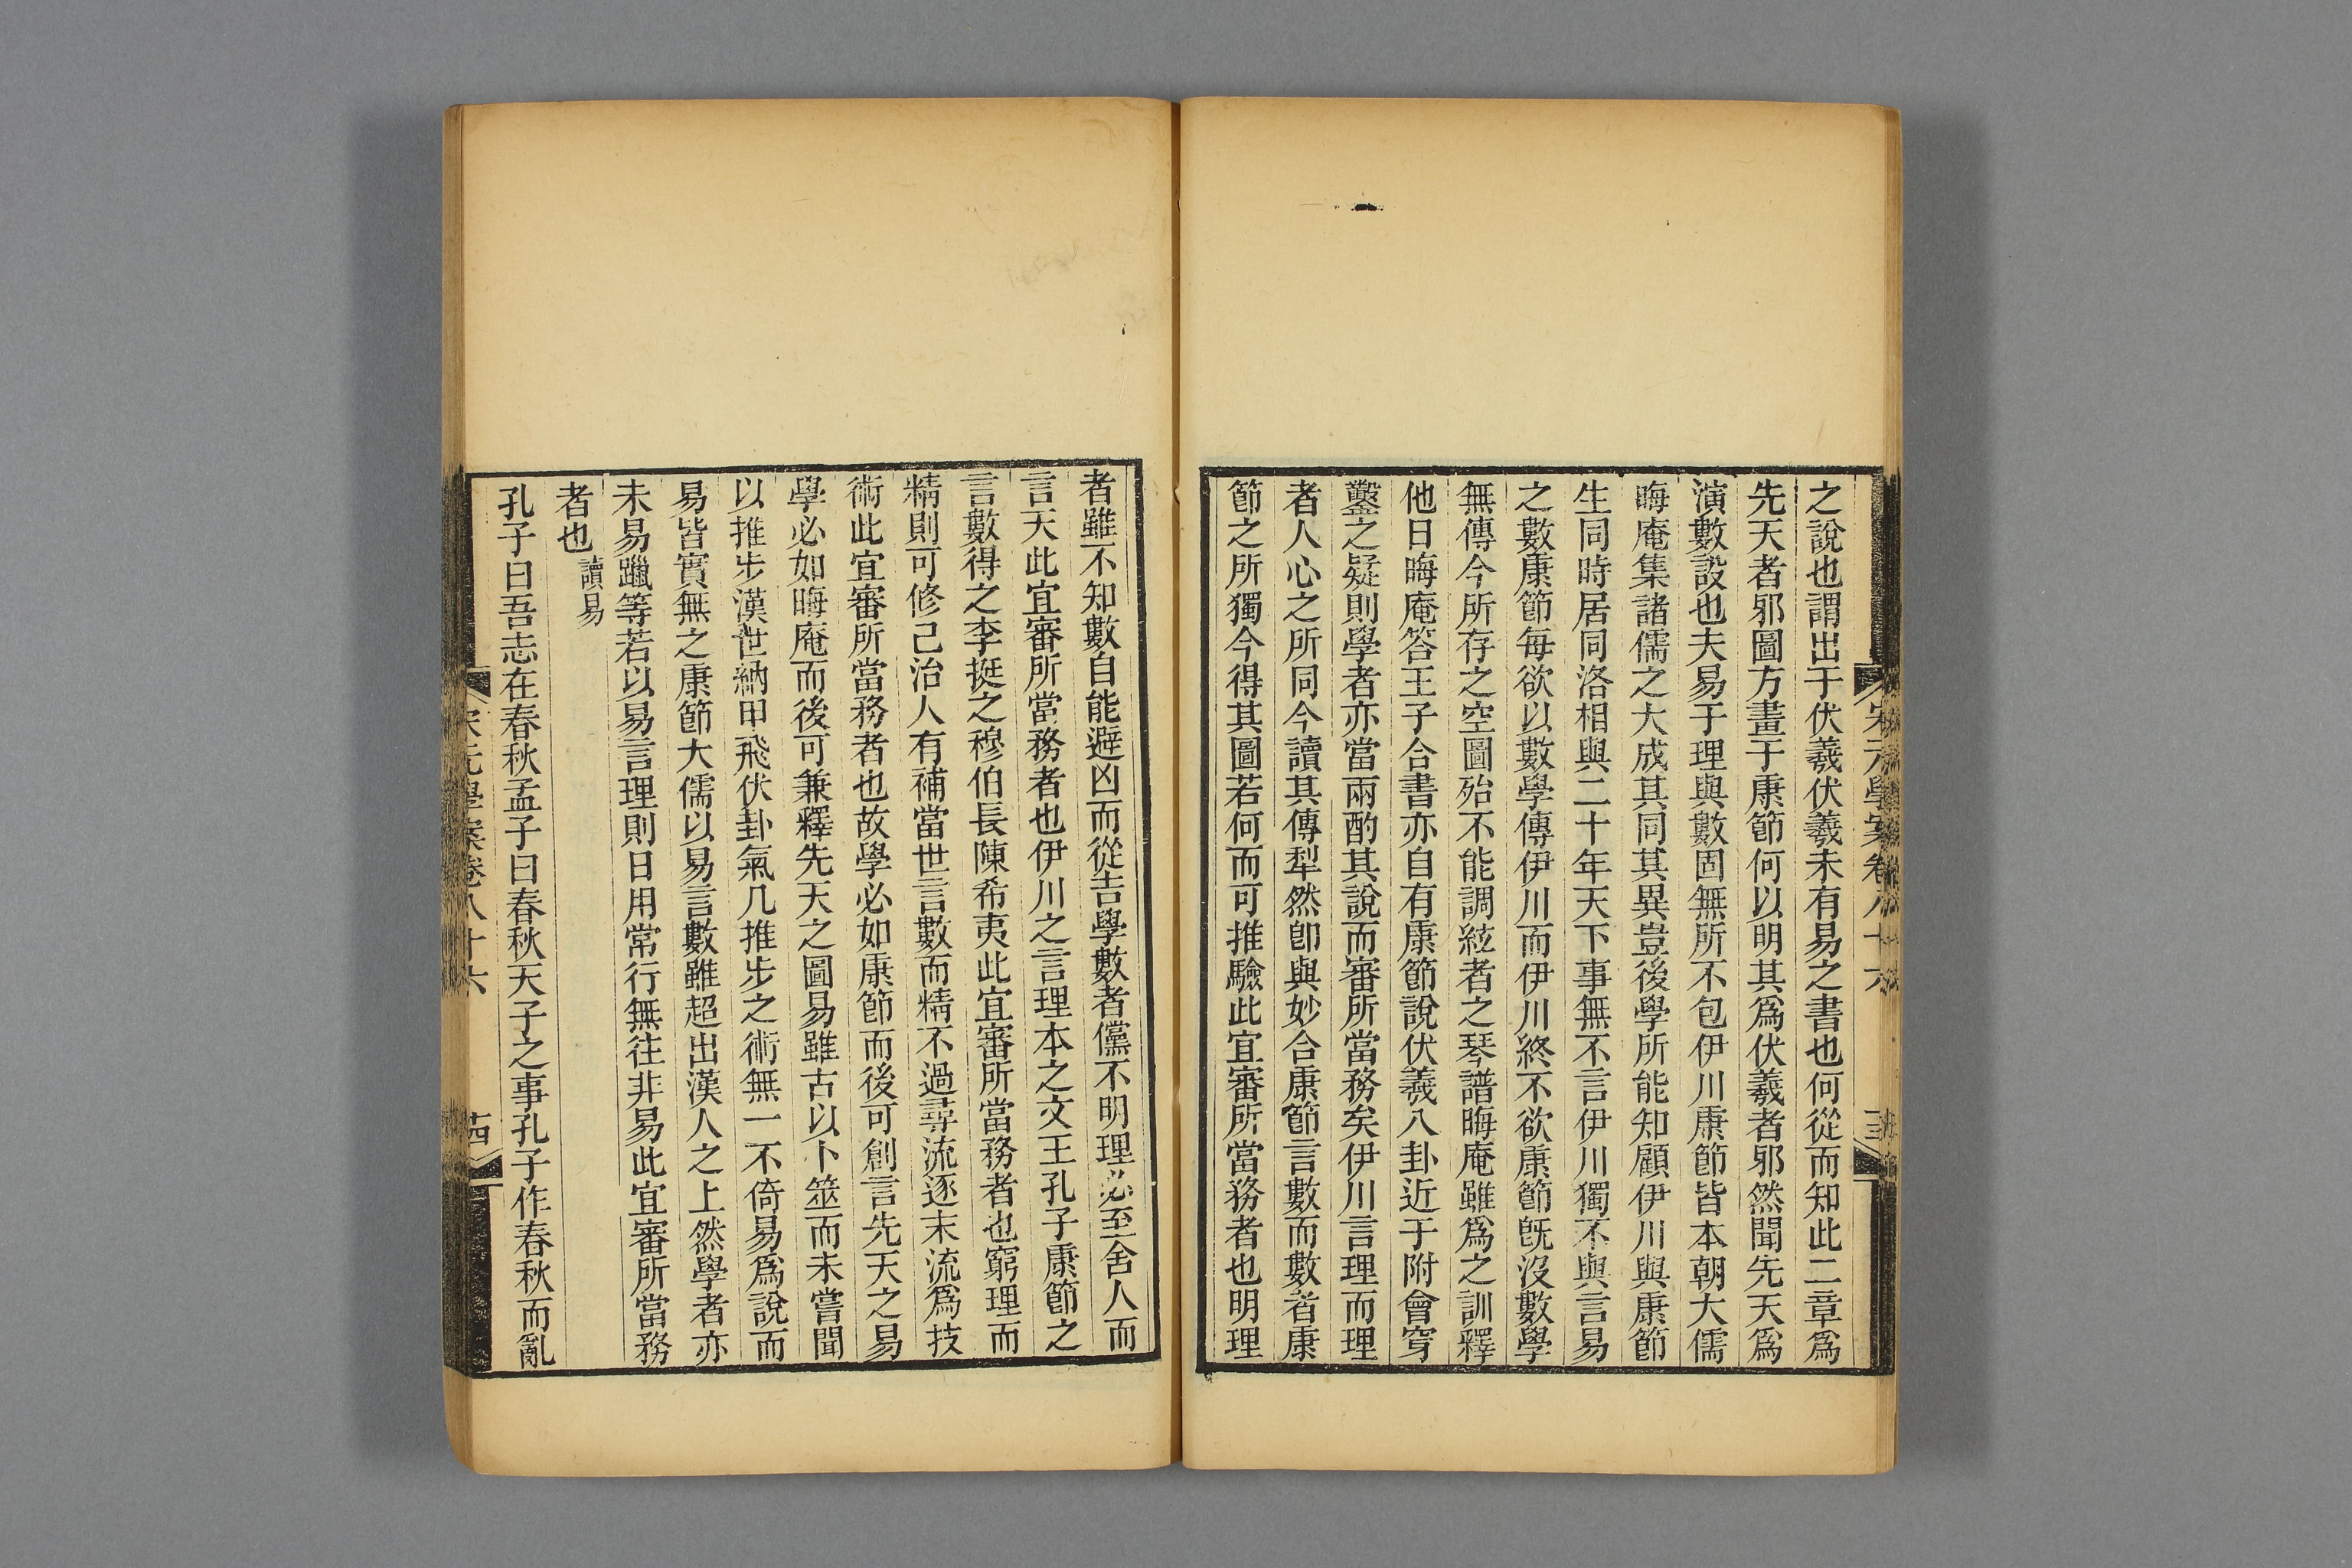 宋元學案卷八十六
之說也謂出于伏羲伏羲未有易之書也何從而知此二章爲
先天者邪圖方畫于康節何以明其爲伏羲者邪然聞先天爲
演數設也夫易于理與數固無所不包伊川康節皆本朝大儒
晦庵集諸儒之大成其同其異豈後學所能知顧伊川與康節
生同時居同洛相與二十年天下事無不言伊川獨不與言易
之數康節每欲以數學傳伊川而伊川終不欲康節旣沒數學
無傳今所存之空圖殆不能調絃者之琴譜晦庵雖爲之訓釋
他日晦庵答王子合書亦自有康節說伏羲八卦近于附會穿
鑿之疑則學者亦當兩酌其說而審所當務矣伊川言理而理
者人心之所同今讀其傳犁然卽與妙合康節言數而數者康
節之所獨今得其圖若何而可推驗此宜審所當務者也明理
者雖不知數自能避凶而從吉學數者儻不明理必至舍人而
言天此宜審所當務者也伊川之言理本之文王孔子康節之
言數得之李挺之穆伯長陳希夷此宜審所當務者也窮理而
精則可修己治人有補當世言數而精不過尋流逐末流爲技
術此宜審所當務者也故學必如康節而後可創言先天之易
學必如晦庵而後可兼釋先天之圖易雖古以卜筮而未嘗聞
以推步漢世納甲飛伏卦氣凡推步之術無一不倚易爲說而
易皆實無之康節大儒以易言數雖超出漢人之上然學者亦
未易躐等若以易言理則日用常行無往非易此宜審所當務
者也讀易
孔子曰吾志在春秋孟子曰春秋天子之事孔子作春秋而亂
宋元學案卷八十六
古